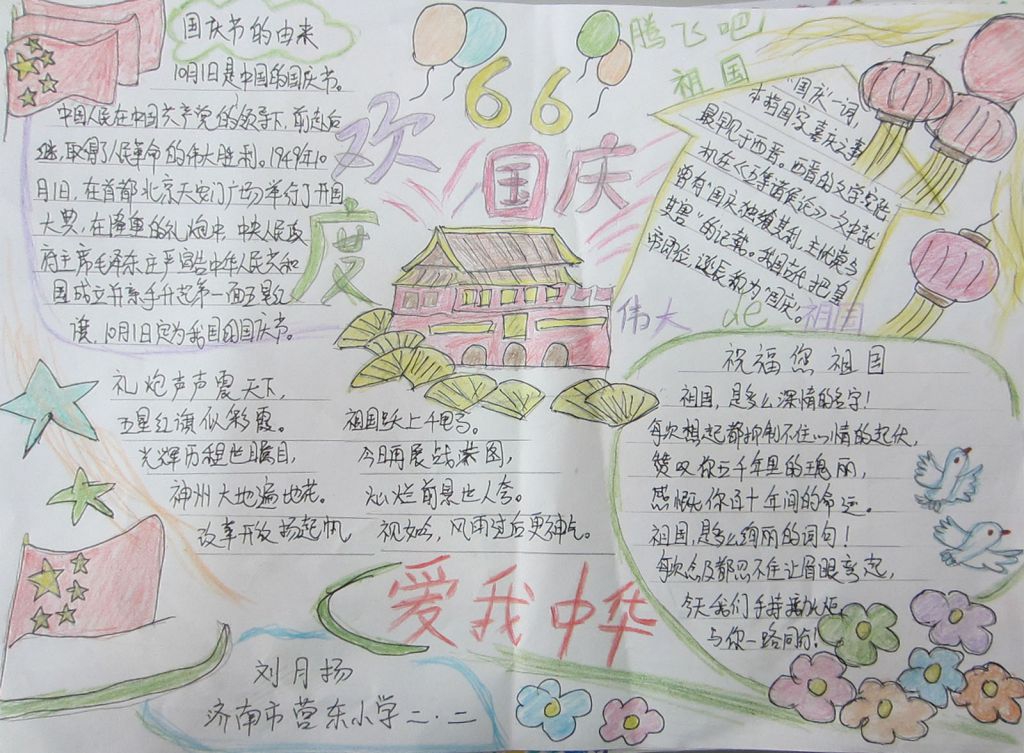 国庆节的由来
10月1日是中国的国庆节。
中国人民在中国共产党的领导下,前赴后
继,取得了人民革命的伟大胜利。1949年10
月1日,在首都北京天安门广场举行了开国
大典,在隆隆的礼炮中,中央人民政
府主席毛泽东庄严宣告中华人民共和
国成立并亲手升起第一面五星红
旗,10月1日定为我国的国庆节。
66
欢
度
国庆
腾飞吧
祖国
"国庆"一词,
本指国家喜庆之事
最早见于西晋。西晋的文学家陆
机在《五等诸侯论》一文中就
曾有"国庆独飨其利,主忧莫与
其害"的记载。我国古代把皇
帝即位、诞辰称为"国庆"。
伟大de祖国
礼炮声声震天下,
五星红旗似彩霞。
光辉历程世瞩目,
神州大地遍地花。
改革开放扬起帆
祖国跃上千里马。
今日再展线蓝图,
灿烂前景世人夸。
风雨过后更神气。
祝福您祖国
祖国,是多么深情的名字!
每次想起都抑制不住心情的起伏,
赞叹你五千年里的瑰丽,
感慨你五十年间的命运。
祖国,是多么绚丽的词句!
每次念及都忍不住让眉眼弯起,
今天我们手持火炬
与你一路同行!
爱我中华
刘月扬
济南市营东小学二·二